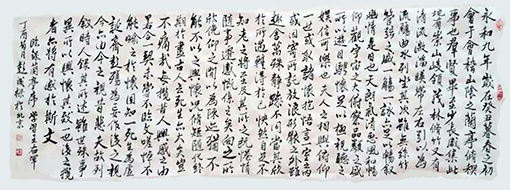 永和九年歲在癸丑暮春之初
會于會稽山陰之蘭亭脩禊
事也群賢畢至少長咸集此
地有崇山峻領茂林脩竹又有
清流激湍暎帶左右引以為
流觴曲水列坐其次雖無絲竹
管弦之盛一觴一詠亦足以暢敘
幽情是日也天朗氣清惠風和暢
仰觀宇宙之大俯察品類之盛
所以遊目騁懷足以極視聽之
娛信可樂也夫人之相與俯仰
一世或取諸懷抱悟言一室之內
或因寄所託放浪形骸之外雖
趣舍萬殊靜躁不同當其欣
於所遇暫得於己快然自足不
知老之將至及其所之既惓情
隨事遷感慨係之矣向之所
欣俛仰之間以為陳迹猶不
能不以之興懷況脩短隨化終
期於盡古人云死生亦大矣豈
不痛哉每攬昔人興感之由
若合一契未嘗不臨文嗟悼不
能喻之於懷固知一死生為虛
誕齊彭殤為妄作後之視
今亦由今之視昔悲夫故列
敘時人錄其所述雖世殊事
異所以興懷其致一也後之攬
者亦將有感於斯文
臨蘭亭序學習王右軍
丁酉菊月彭於北京